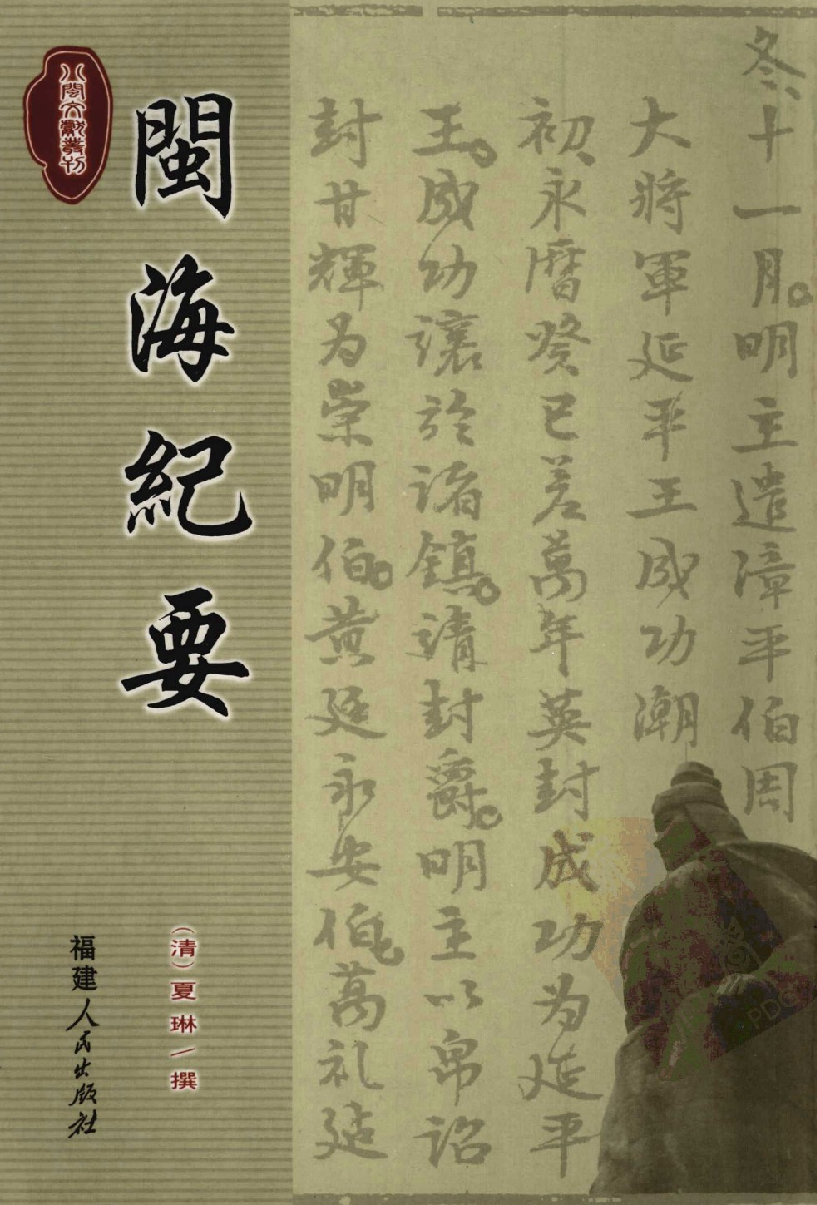 八閩文獻叢刊
閩海紀要
（清）夏琳／撰
福建人民出版社
冬、十一月。明主遣漳平伯周
大將軍延平王成功潮
初、永曆癸巳差萬年英封成功为延平
王。成功讓於諸鎮。請封爵。明主以帛詔
封甘輝为崇明伯。黄廷永安伯。萬礼延
PDG